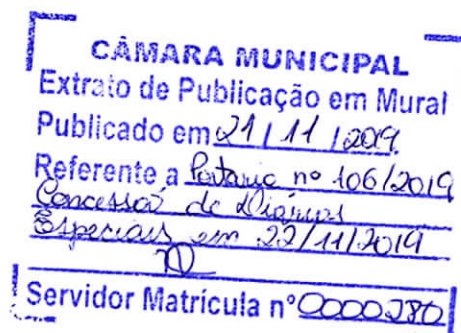 CÂMARA MUNICIPAL
Extrato de Publicação em Mural
Publicado em 21 / 11 / 2019
Referente a Portaria nº 106/2019
Concessão de Diárias
Especiais em 22/11/2019
Servidor Matrícula nº